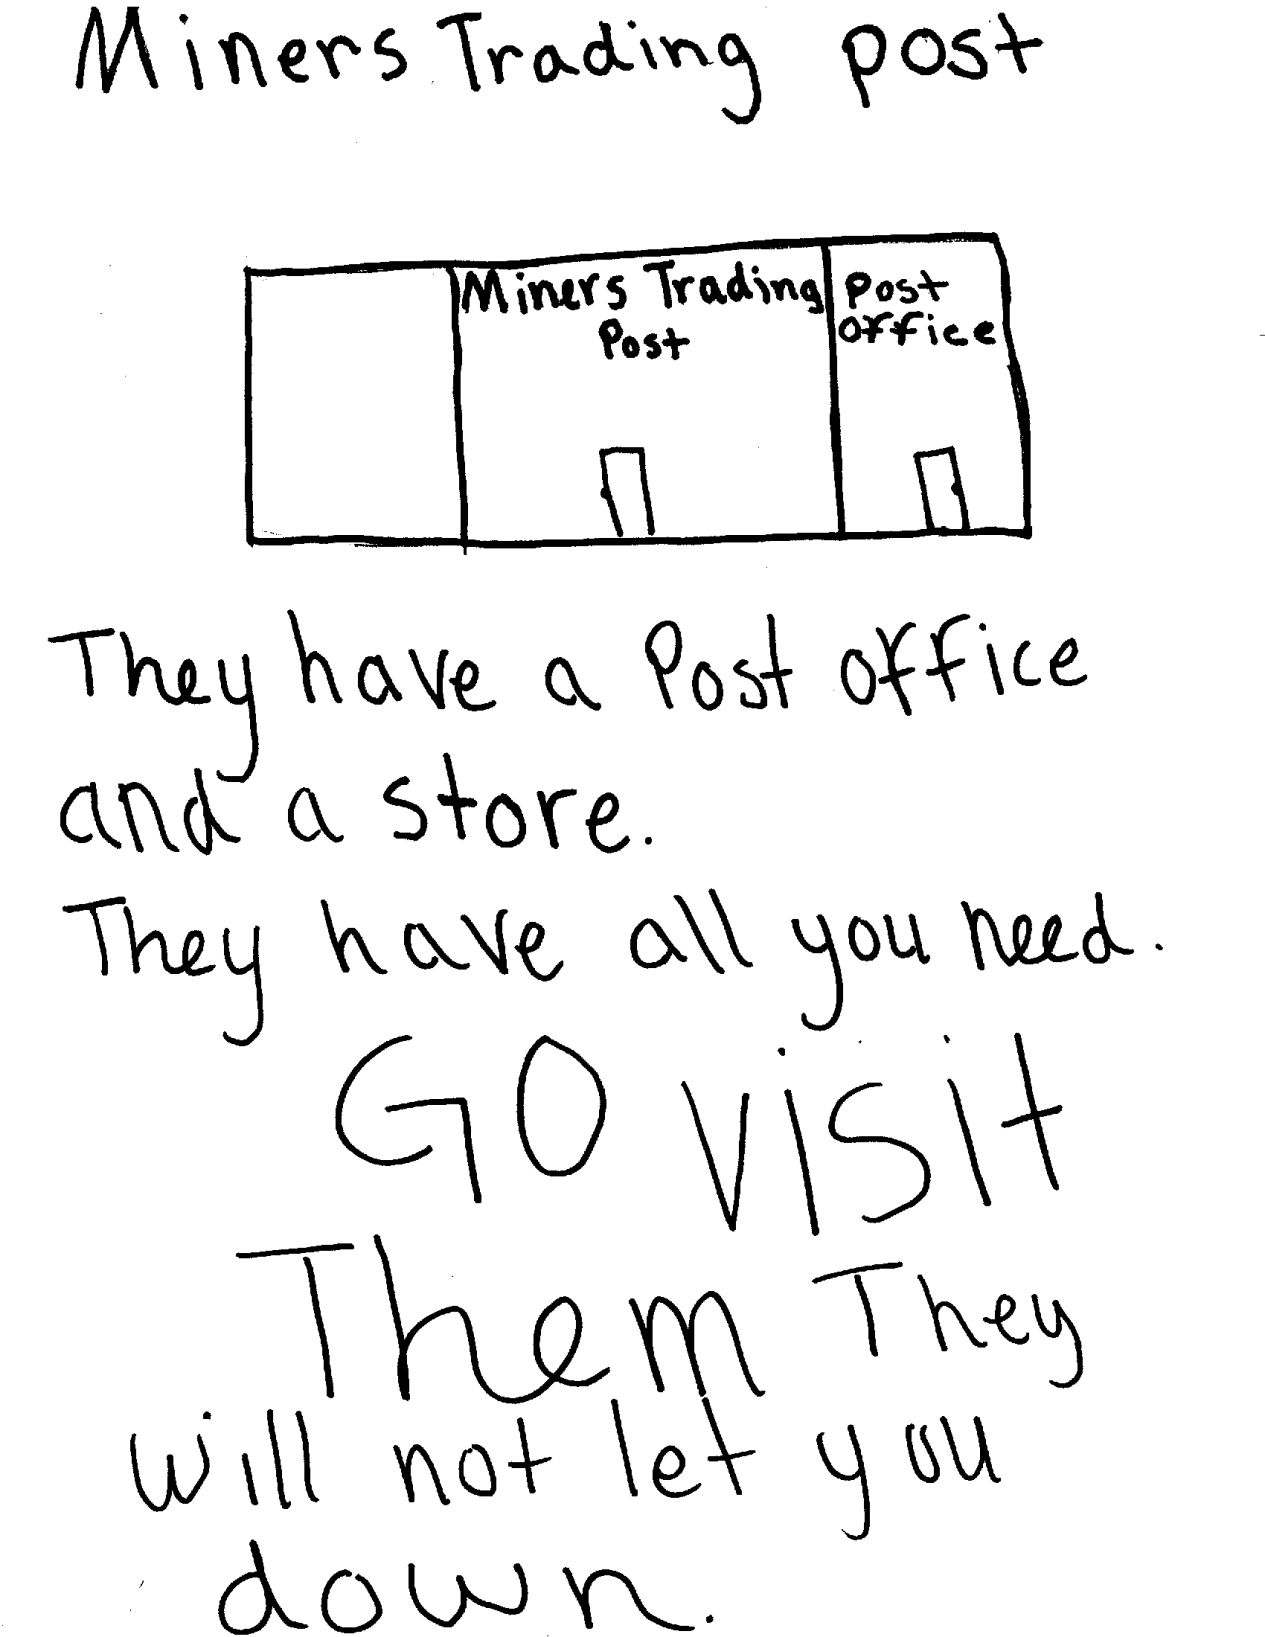 Miners Trading post
Miners Trading
Post
Post
office
They have a Post office
and a store.
They have all you need.
GO visit
Them They
will not let you
down.